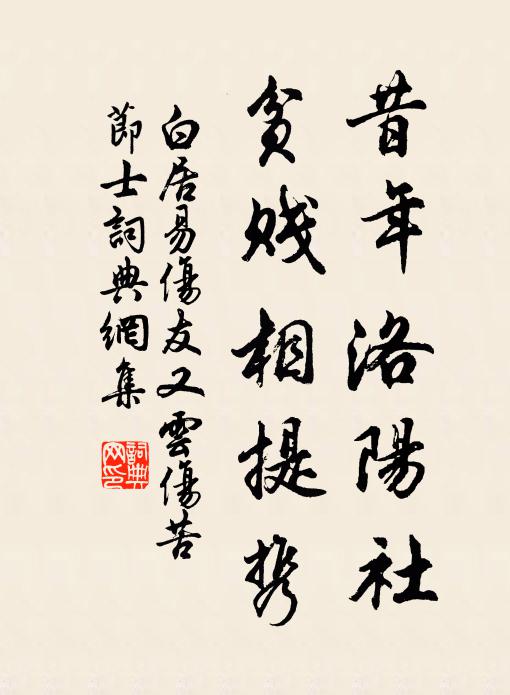 昔年洛陽社
貧賤相提携
白居易傷友又雲傷苦
節士詞典網集
詞典
网印